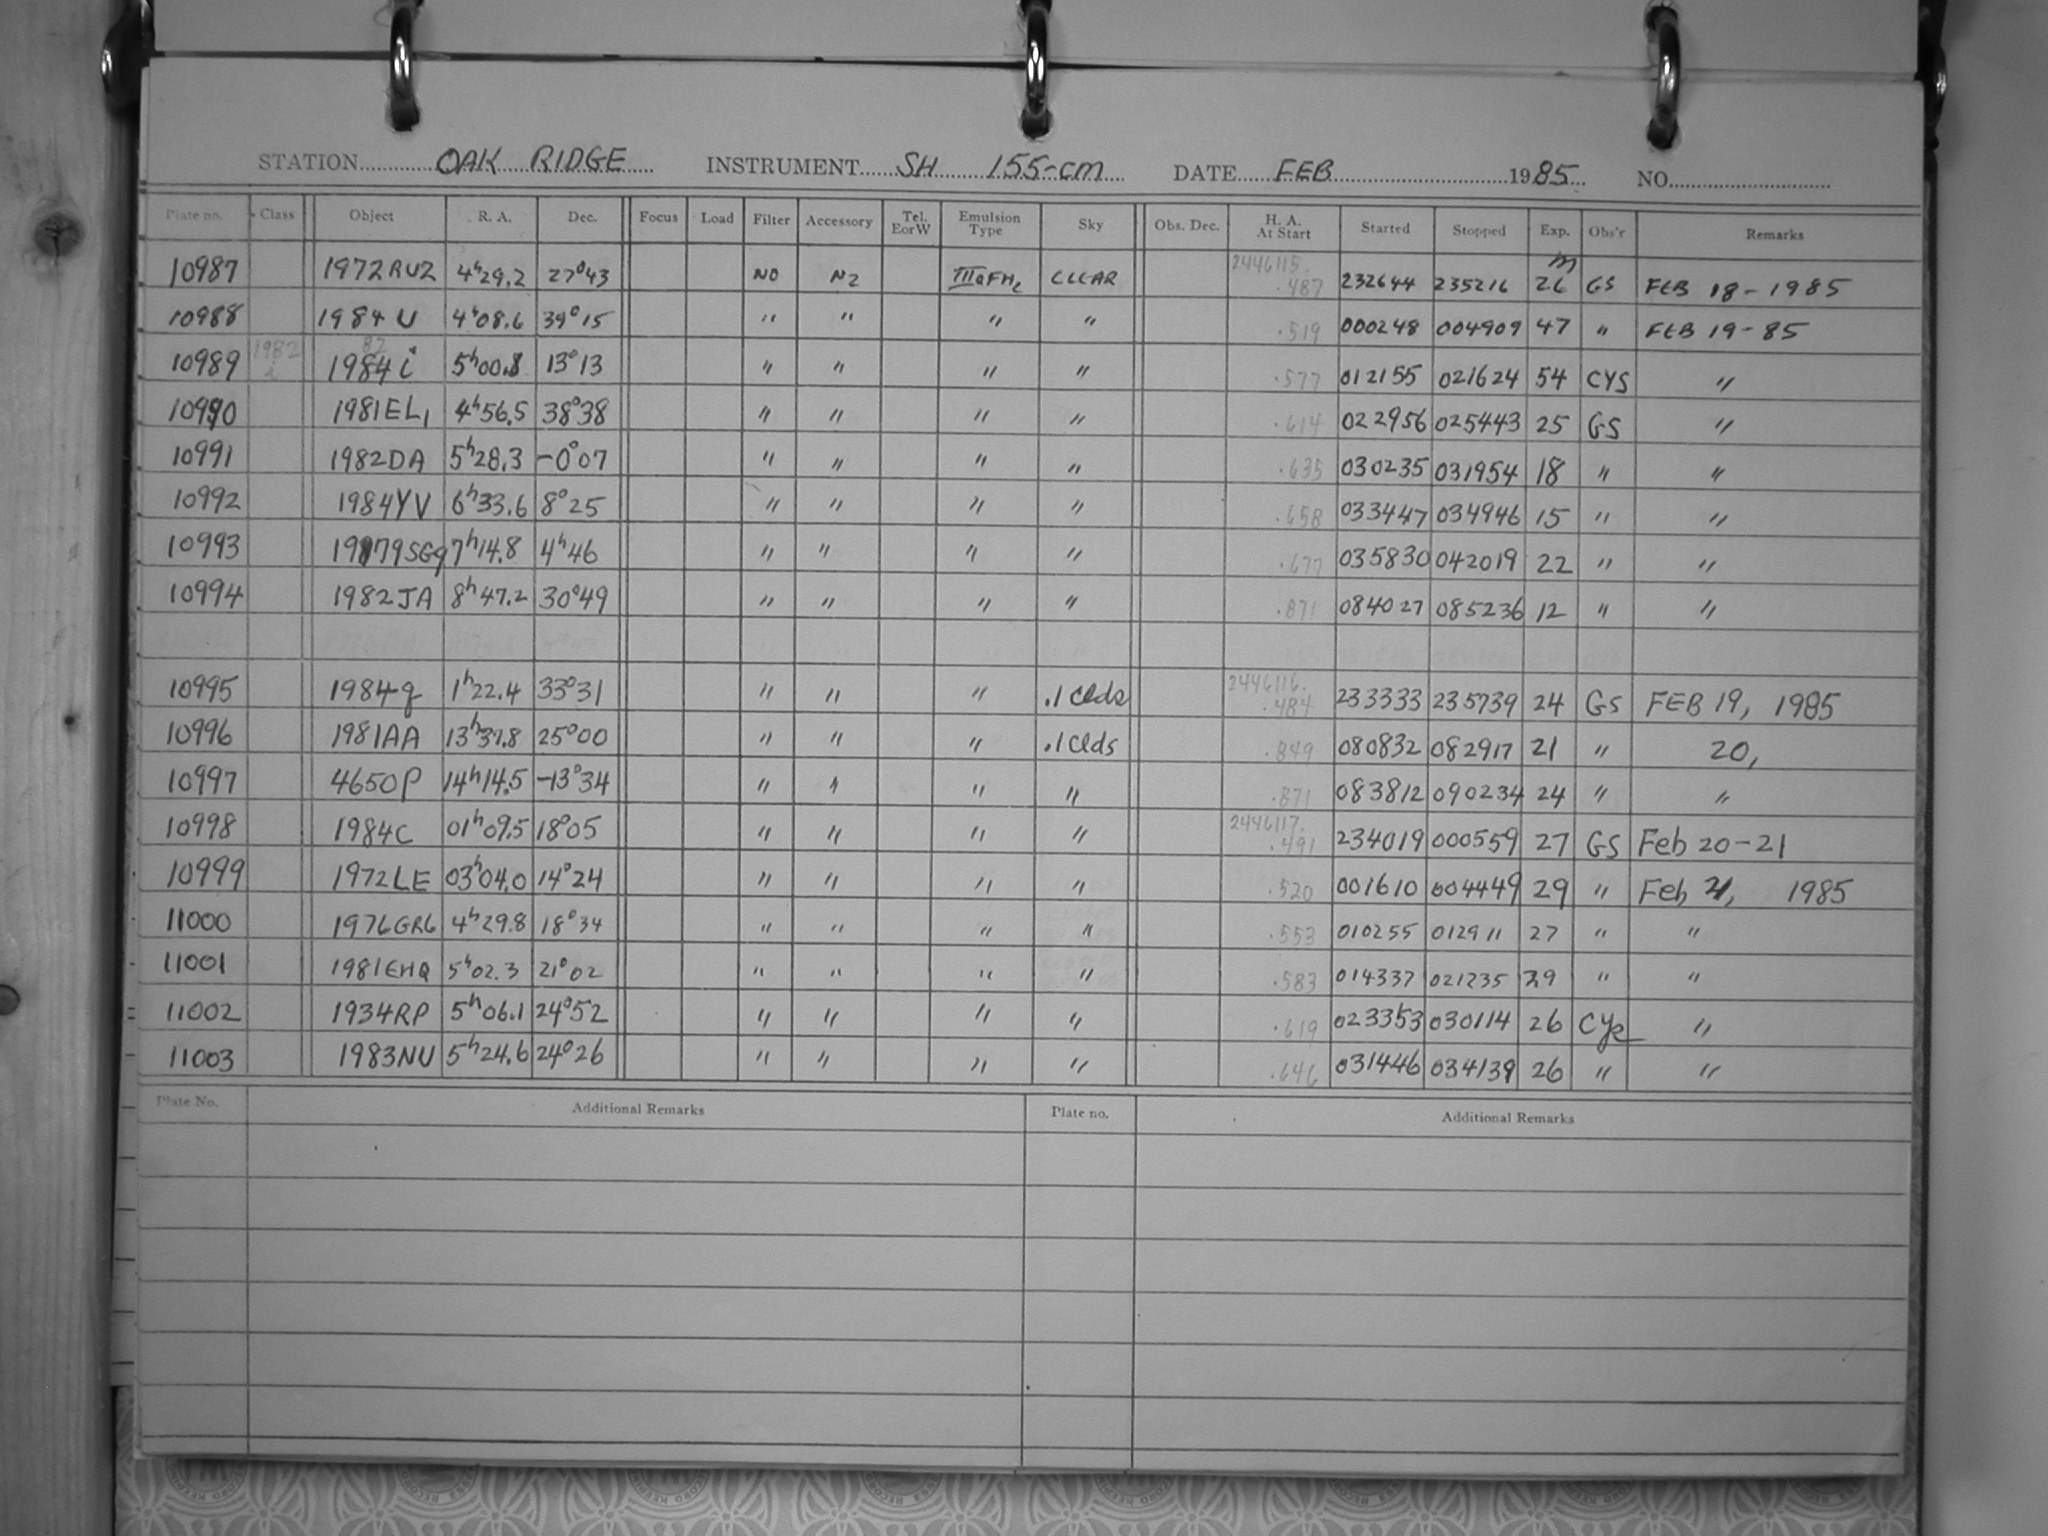 STATION OAK RIDGE INSTRUMENT SH 155-cm DATE FEB 1985 NO.
Plate no. Class Object R. A. Dec. Focus Load Filter Accessory Tel. EorW Emulsion Type Sky Obs. Dec. H. A. At Start Started Stopped Exp. Obs'r Remarks
10987 1972RUZ 4h29.2 27°43 NO N2 IIIaFH2 CLEAR 2446115. .487 232644 235216 26m GS FEB 18-1985
10988 1984 U 4h08.6 39°15 " " " " .519 000248 004909 47 " FEB 19-85
10989 1982 i 1984 i 82 5h00.8 13°13 " " " " .577 012155 021624 54 CYS "
10990 1981EL1 4h56.5 38°38 " " " " .614 022956 025443 25 GS "
10991 1982DA 5h28.3 -0°07 " " " " .635 030235 031954 18 " "
10992 1984YV 6h33.6 8°25 " " " " .658 033447 034946 15 " "
10993 1979SG9 7h14.8 4h46 " " " " .677 035830 042019 22 " "
10994 1982JA 8h47.2 30°49 " " " " .871 084027 085236 12 " "
10995 1984q 1h22.4 33°31 " " " .1 Clds 2446116. .484 233333 235739 24 GS FEB 19, 1985
10996 1981AA 13h37.8 25°00 " " " .1 Clds .849 080832 082917 21 " 20,
10997 4650P 14h14.5 -13°34 " " " " .871 083812 090234 24 " "
10998 1984C 01h09.5 18°05 " " " " 2446117. .491 234019 000559 27 GS Feb 20-21
10999 1972LE 03h04.0 14°24 " " " " .520 001610 004449 29 " Feb 21, 1985
11000 1976GR6 4h29.8 18°34 " " " " .553 010255 012911 27 " "
11001 1981EHQ 5h02.3 21°02 " " " " .583 014337 021235 29 " "
11002 1934RP 5h06.1 24°52 " " " " .619 023353 030114 26 CYe "
11003 1983NU 5h24.6 24°26 " " " " .646 031446 034139 26 " "
Plate No. Additional Remarks Plate no. Additional Remarks